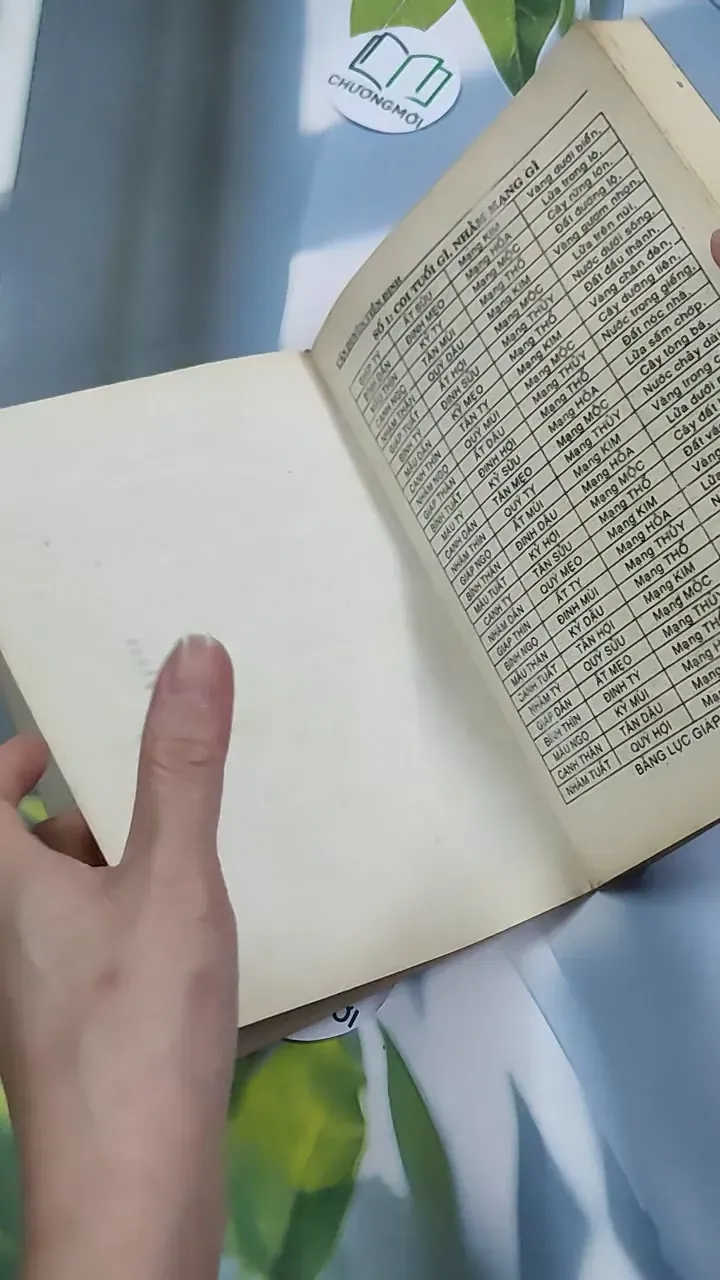 CĂN DUYÊN TIỀN ĐỊNH
SỐ 1: COI TUỔI GÌ, NHẰM MẠNG GÌ
GIÁP TÝ ẤT SỬU Mạng KIM Vàng dưới biển.
BÍNH DẦN ĐINH MẸO Mạng HỎA Lửa trong lò.
MẬU THÌN KỶ TỴ Mạng MỘC Cây rừng lớn.
CANH NGỌ TÂN MÙI Mạng THỔ Đất đường lộ.
NHÂM THÂN QUÝ DẬU Mạng KIM Vàng gươm nhọn.
GIÁP TUẤT ẤT HỢI Mạng MỘC Lửa trên núi.
BÍNH TÝ ĐINH SỬU Mạng THỦY Nước dưới sông.
MẬU DẦN KỶ MẸO Mạng THỔ Đất đầu thành.
CANH THÌN TÂN TỴ Mạng KIM Vàng chân đèn.
NHÂM NGỌ QUÝ MÙI Mạng MỘC Cây dương liễu.
GIÁP THÂN ẤT DẬU Mạng THỦY Nước trong giếng.
BÍNH TUẤT ĐINH HỢI Mạng THỔ Đất nóc nhà.
MẬU TÝ KỶ SỬU Mạng HỎA Lửa sấm chớp.
CANH DẦN TÂN MẸO Mạng MỘC Cây tòng bá.
NHÂM THÌN QUÝ TỴ Mạng THỦY Nước chảy dài
GIÁP NGỌ ẤT MÙI Mạng KIM Vàng trong
BÍNH THÂN ĐINH DẬU Mạng HỎA Lửa dưới
MẬU TUẤT KỶ HỢI Mạng MỘC Cây đất
CANH TÝ TÂN SỬU Mạng THỔ Đất
NHÂM DẦN QUÝ MẸO Mạng KIM Vàng
GIÁP THÌN ẤT TỴ Mạng HỎA Lửa
BÍNH NGỌ ĐINH MÙI Mạng THỦY
MẬU THÂN KỶ DẬU Mạng THỔ
CANH TUẤT TÂN HỢI Mạng KIM
NHÂM TÝ QUÝ SỬU Mạng MỘC
GIÁP DẦN ẤT MẸO Mạng THỦY
BÍNH THÌN ĐINH TỴ Mạng
MẬU NGỌ KỶ MÙI Mạng
CANH THÂN TÂN DẬU Mạng
NHÂM TUẤT QUÝ HỢI
BẢNG LỤC GIÁP
CHƯƠNGMỚI